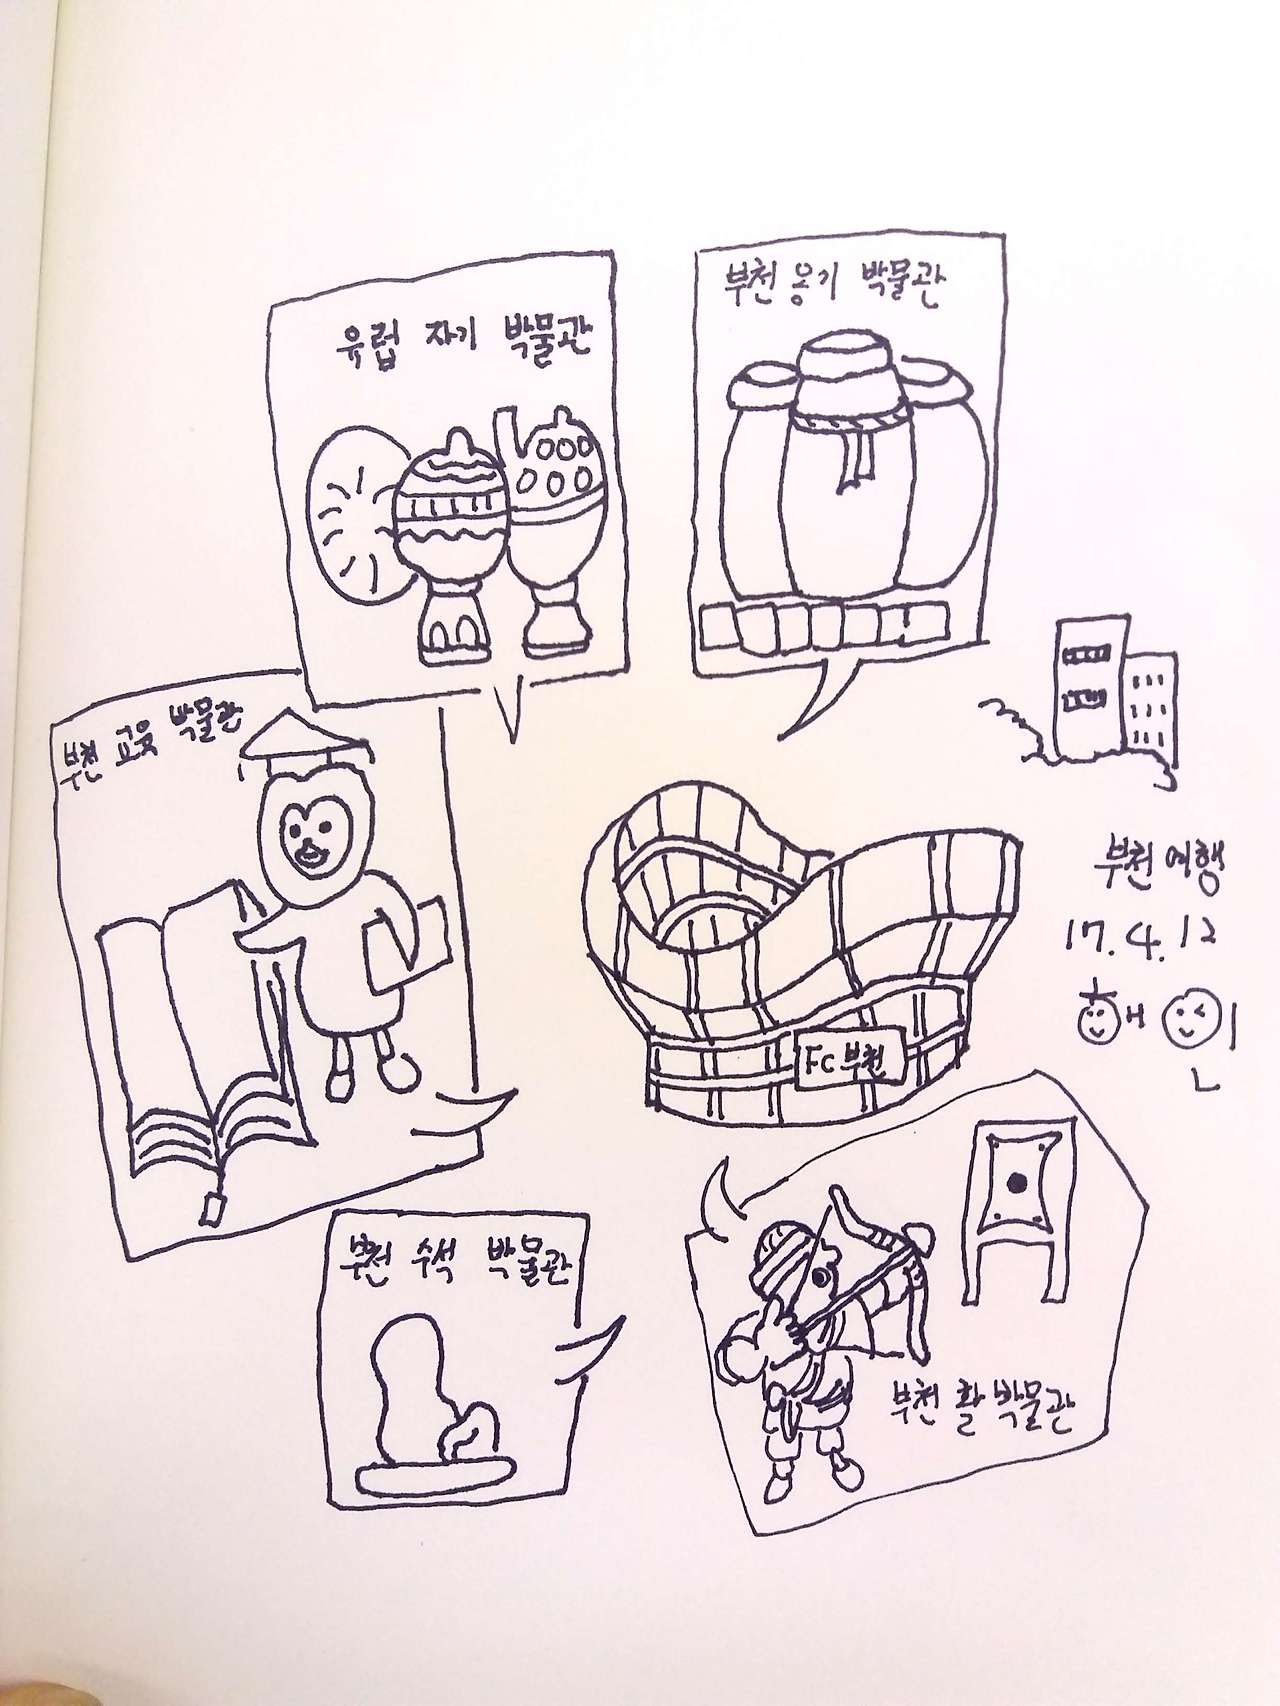 유럽 자기 박물관
부천 옹기 박물관
부천 교육 박물관
부천여행
17.4.12
해인
Fc부천
부천 수석 박물관
부천 활 박물관